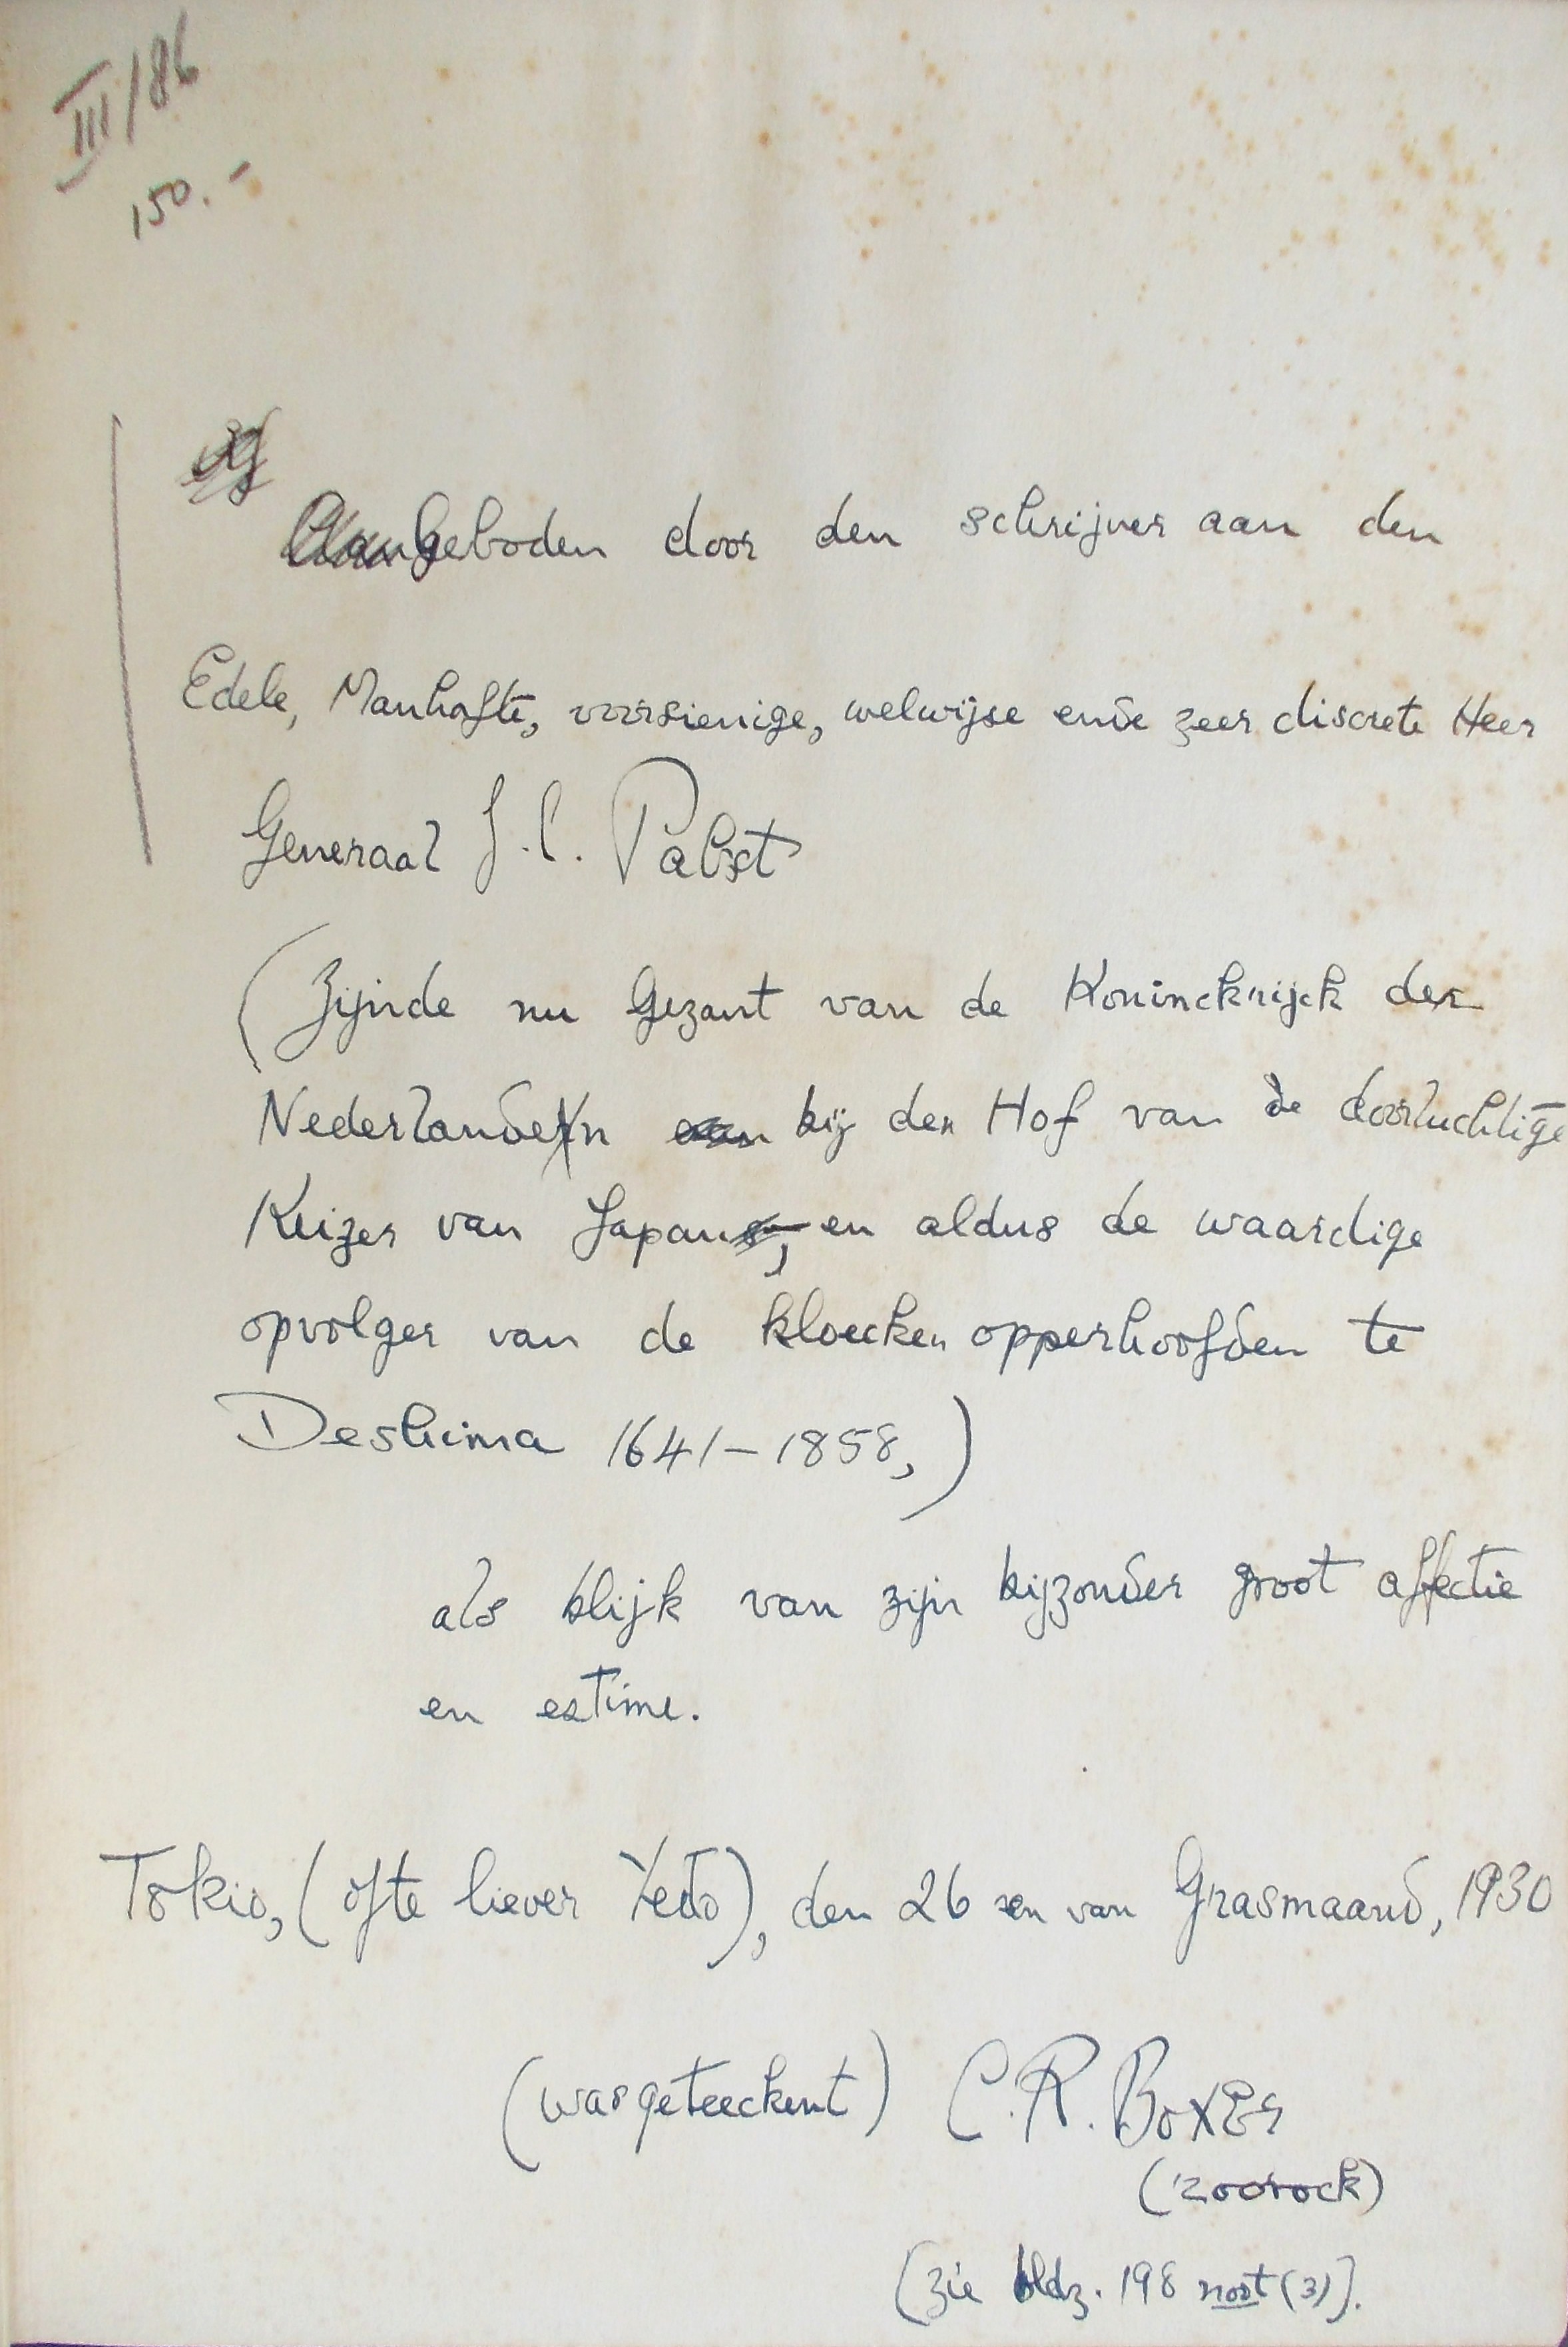 III/86
150.-
Aangeboden door den schrijver aan den
Edele, Manhafte, voorsienige, welwijse ende zeer discrete Heer
Generaal J.C. Pabst
(Zijnde nu Gezant van de Koninckrijck der
Nederlanden bij den Hof van de doorluchtige
Keizer van Japan, en aldus de waardige
opvolger van de kloecken opperhoofden te
Deshima 1641-1858,)
als blijk van zijn bijzonder groot affectie
en estime.
Tokio, (ofte liever Yedo), den 26 en van Grasmaand, 1930
(was geteeckent) C.R. Boxer
(zoorock)
(zie bldz. 198 noot (3)].